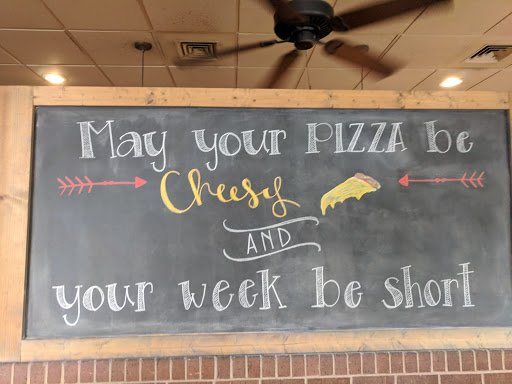 May your PIZZA be
Cheesy
AND
your week be short